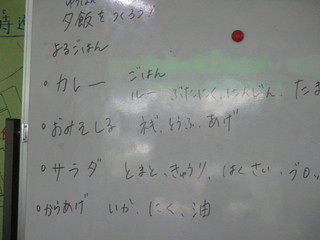 夕飯をつくろう
よるごはん
・カレー ごはん
ルー ぶたにく、にんじん、たま
・おみそしる ネギ、とうふ、あげ
・サラダ とまと、きゅうり、はくさい、ブロッ
・からあげ いか、にく、油